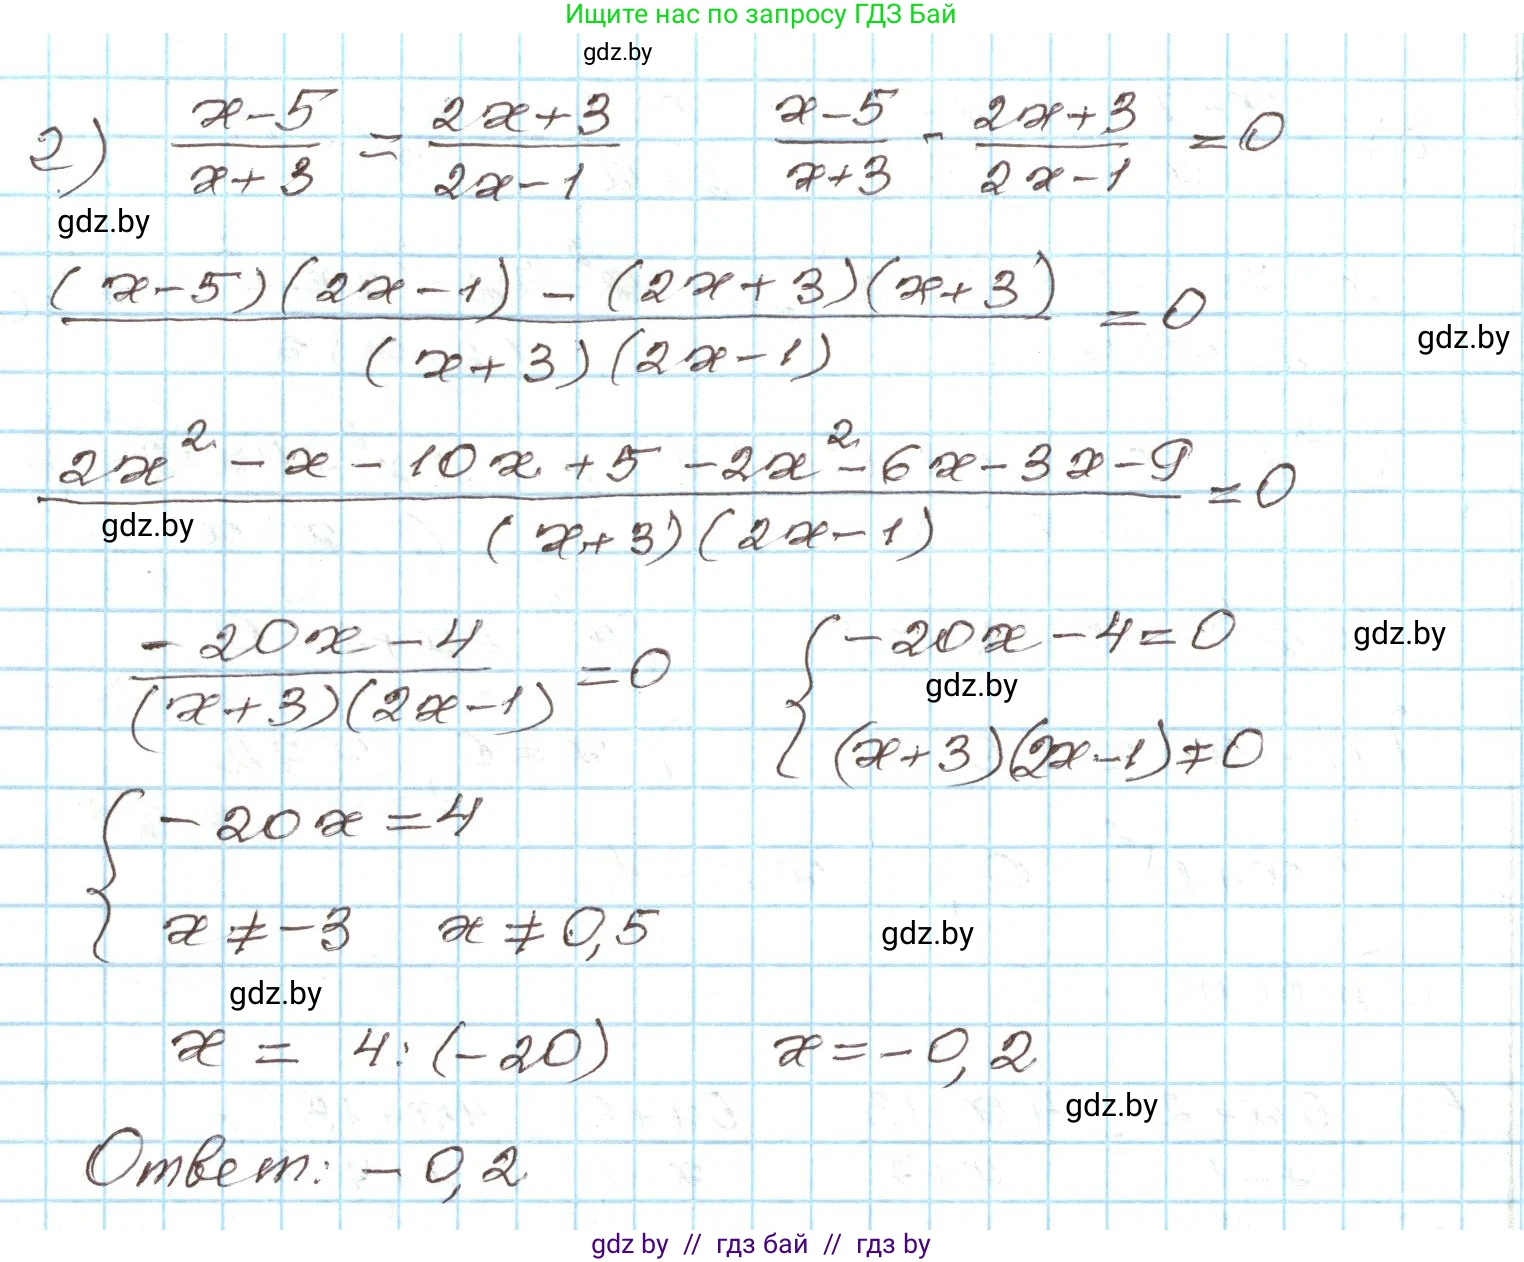 Ищите нас по запросу ГДЗ Бай
gdz.by
2) (x-5)/(x+3) = (2x+3)/(2x-1)    (x-5)/(x+3) - (2x+3)/(2x-1) = 0
gdz.by
((x-5)(2x-1) - (2x+3)(x+3))/((x+3)(2x-1)) = 0
gdz.by
(2x² - x - 10x + 5 - 2x² - 6x - 3x - 9)/((x+3)(2x-1)) = 0
gdz.by
(-20x-4)/((x+3)(2x-1)) = 0    { -20x-4=0
gdz.by
gdz.by
(x+3)(2x-1)≠0
{ -20x=4
x≠-3    x≠0,5
gdz.by
gdz.by
x = 4:(-20)    x=-0,2
gdz.by
Ответ: -0,2
gdz by // гдз бай // гдз by